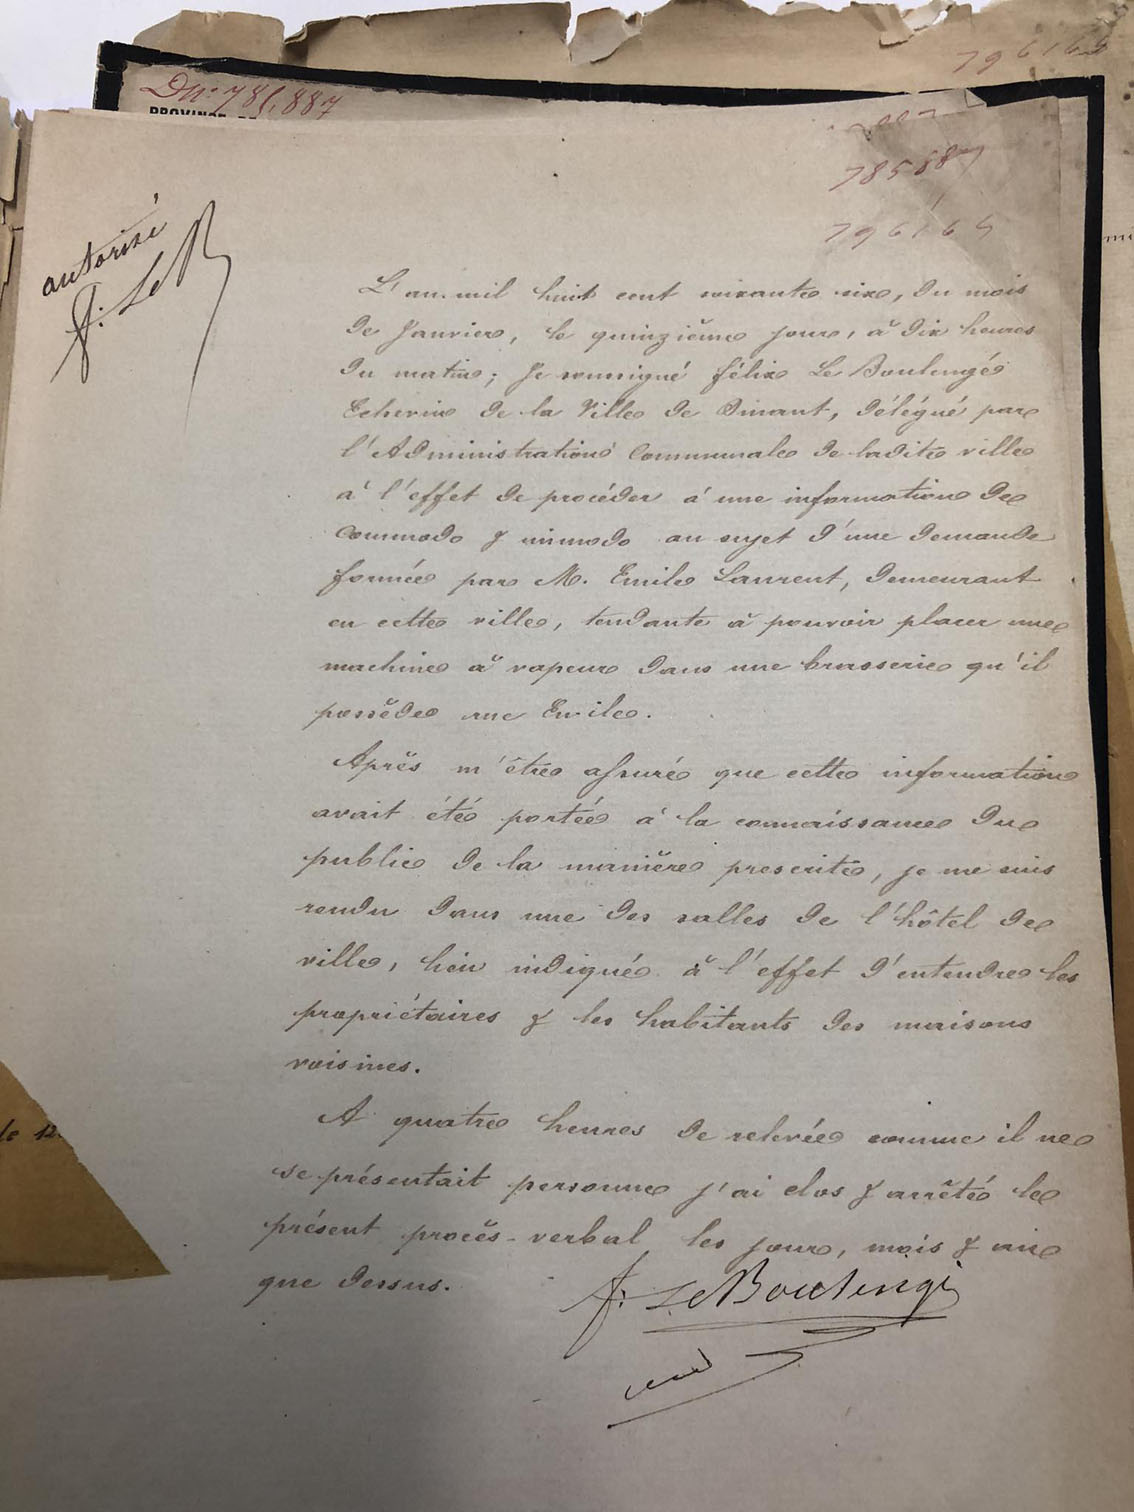 796169
Dn. 781,887
PROVINCE DE
785887
796169
autorisé
F. Le B
L'an mil huit cent soixante six, du mois
de Janvier, le quinzième jour, à dix heures
du matin ; Je soussigné félix Le Boulengé
Echevin de la Ville de Dinant, délégué par
l'Administration Communale de ladite ville
à l'effet de procéder à une information de
commodo & inmodo au sujet d'une demande
formée par M. Emile Laurent, demeurant
en cette ville, tendante à pouvoir placer une
machine à vapeur dans une brasserie qu'il
possède rue Emile.
Après m'être assuré que cette information
avait été portée à la connaissance du
public de la manière prescrite, je me suis
rendu dans une des salles de l'hôtel de
ville, lieu indiqué à l'effet d'entendre les
propriétaires & les habitants des maisons
voisines.
A quatre heures de relevée comme il ne
se présentait personne j'ai clos & arrêté le
présent procès-verbal les jour, mois & an
que dessus.
F. Le Boulengé
le 12.